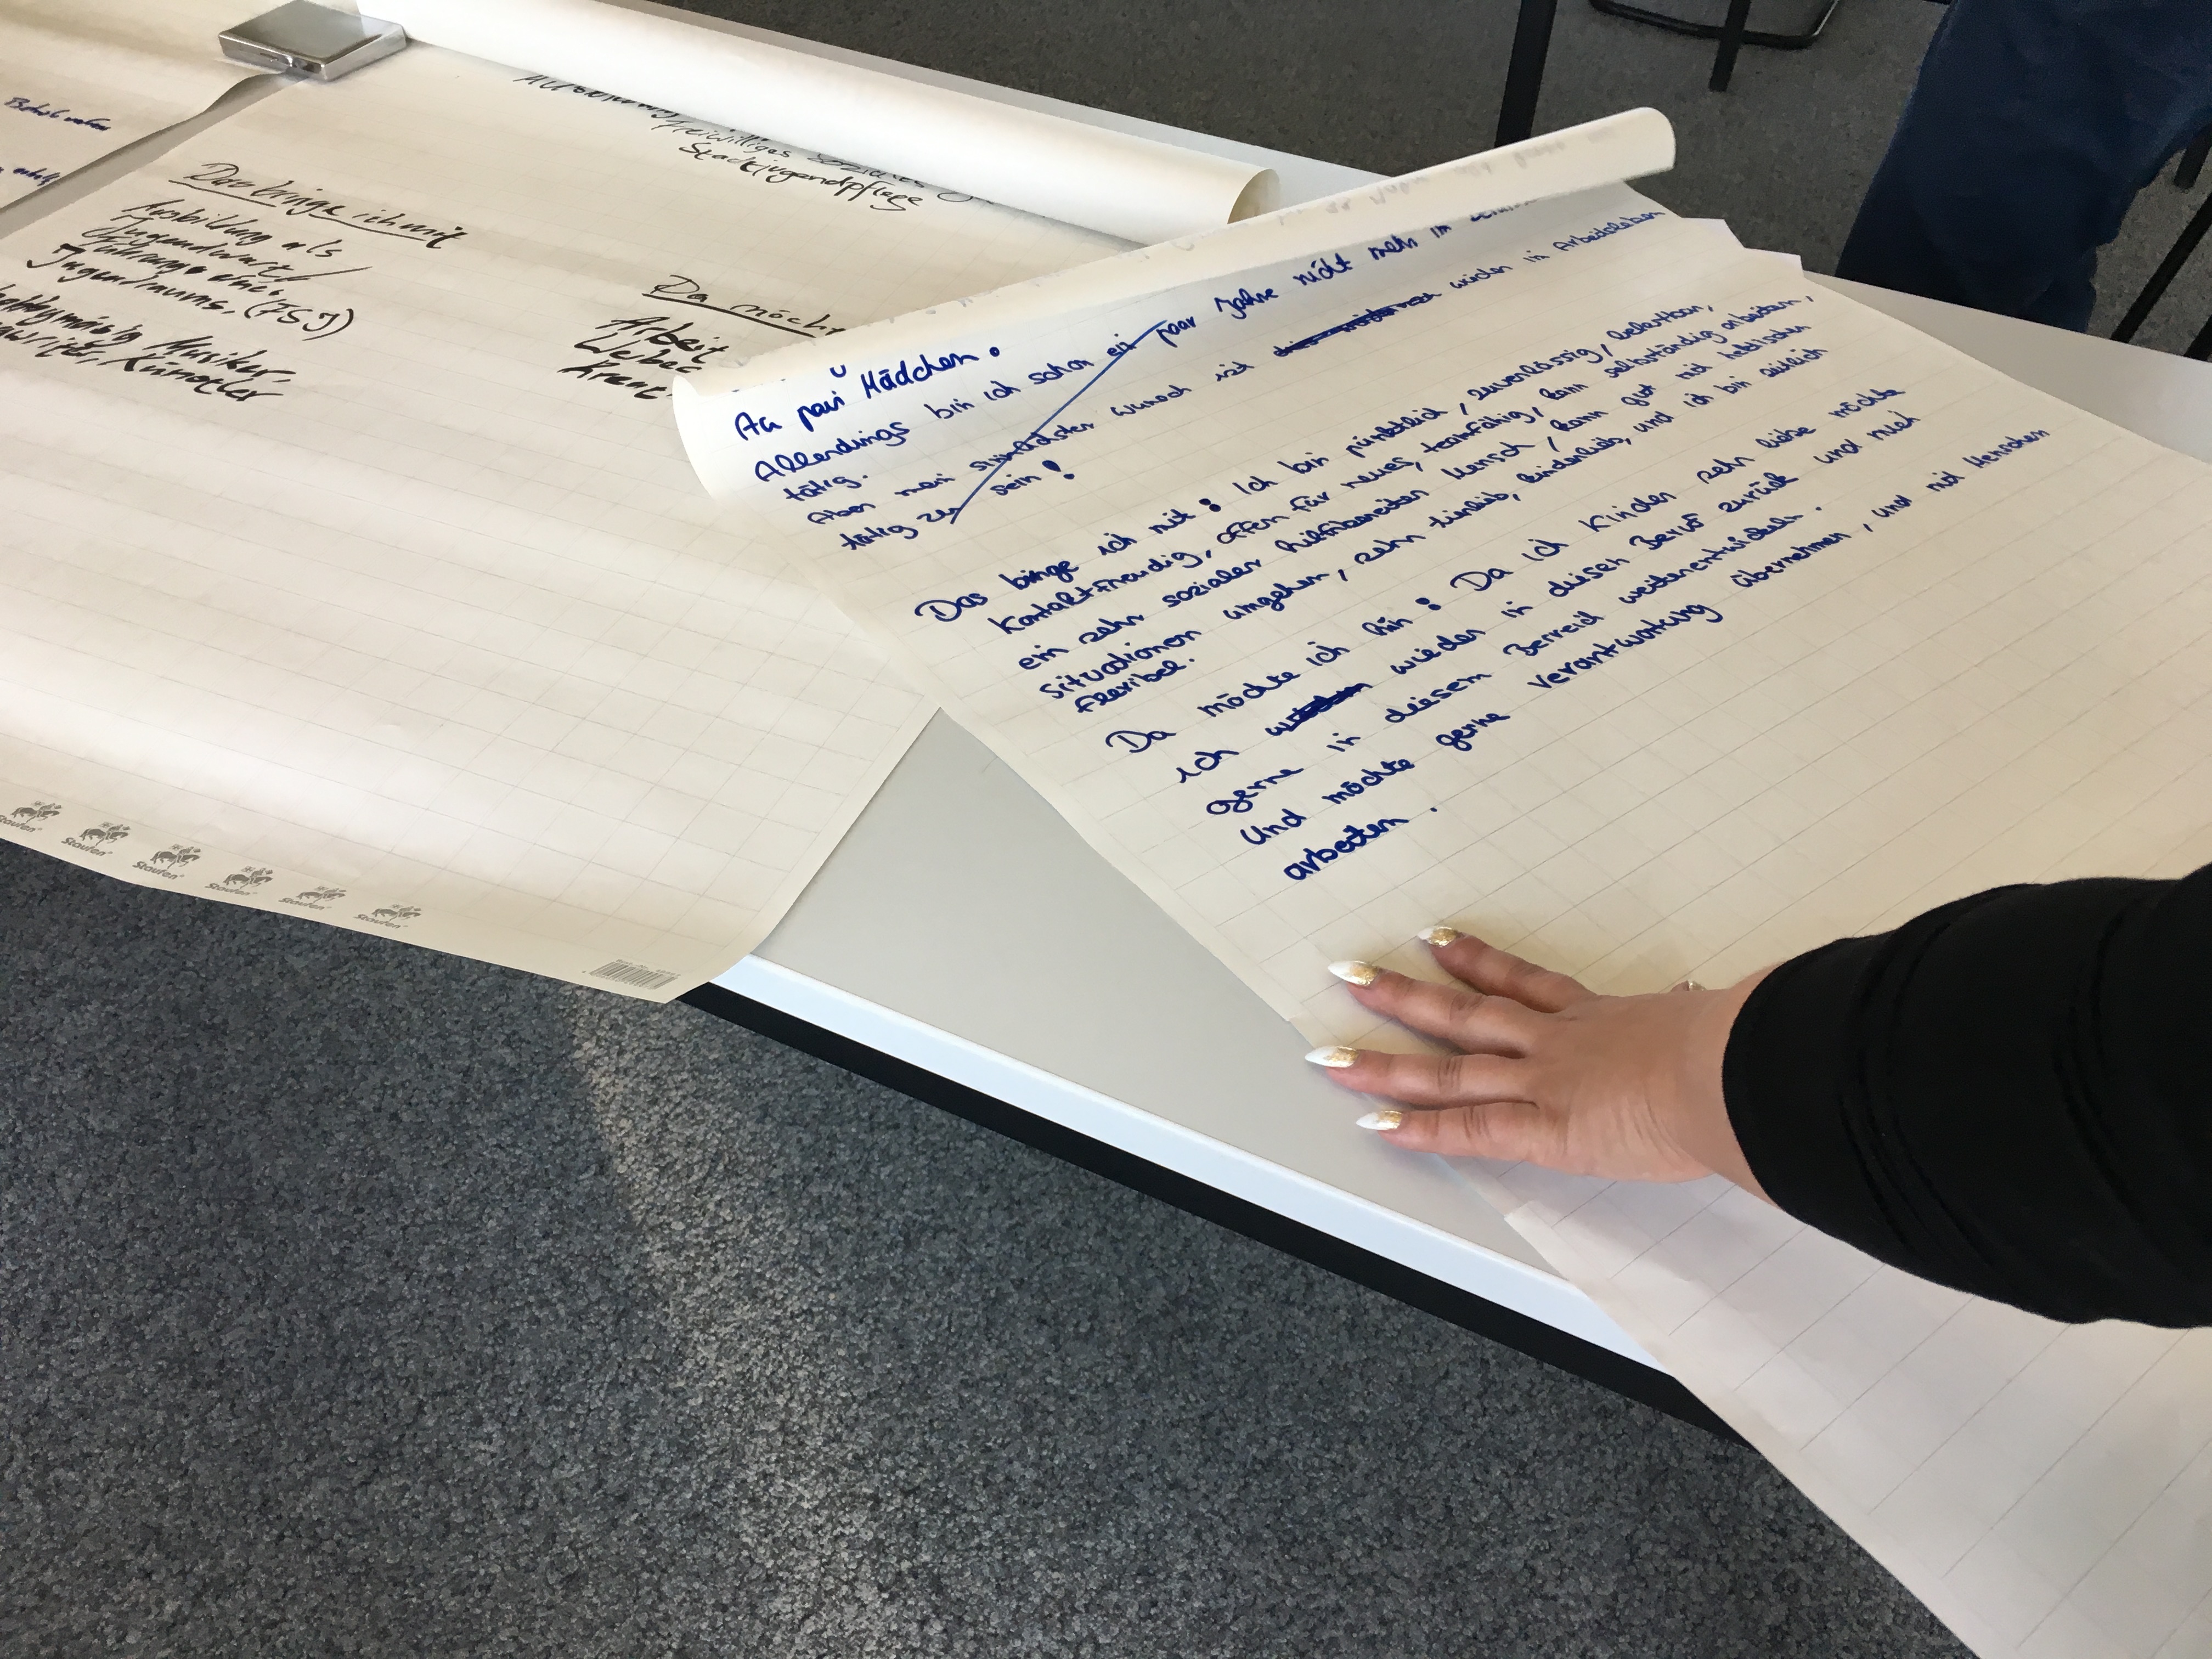 Beruf
freiwilliges soziales
Stadtjugendpflege
Das bringe ich mit
Ausbildung als
Jugendwart/
Führung eines
Jugendraums. (FSJ)
Hobbymäßig Musiker,
Künstler
Da möcht
Arbeit
Au pair Mädchen.
Allerdings bin ich schon ein paar Jahre nicht mehr im
tätig.
Aber mein sehnlichster wunsch ist wieder in Arbeitsleben
tätig zu sein!
Das binge ich mit: Ich bin pünktlich, zuverlässig, belastbar,
Kontaktfreudig, offen für neues, teamfähig, kann selbständig arbeiten,
ein sehr sozialer hilfsbereiter Mensch, kann gut mit hektischen
Situationen umgehen, sehr tierlieb, kinderlieb, und ich bin zeitlich
flexibel.
Da möchte ich hin: Da ich Kinder sehr liebe möchte
ich wieder in diesen Beruf zurück und mich
gerne in diesem Berreich weiterentwickeln.
Und möchte gerne verantwortung übernehmen, und mit Menschen
arbeiten.
Staufen
Staufen
Staufen
Staufen
Staufen
Staufen